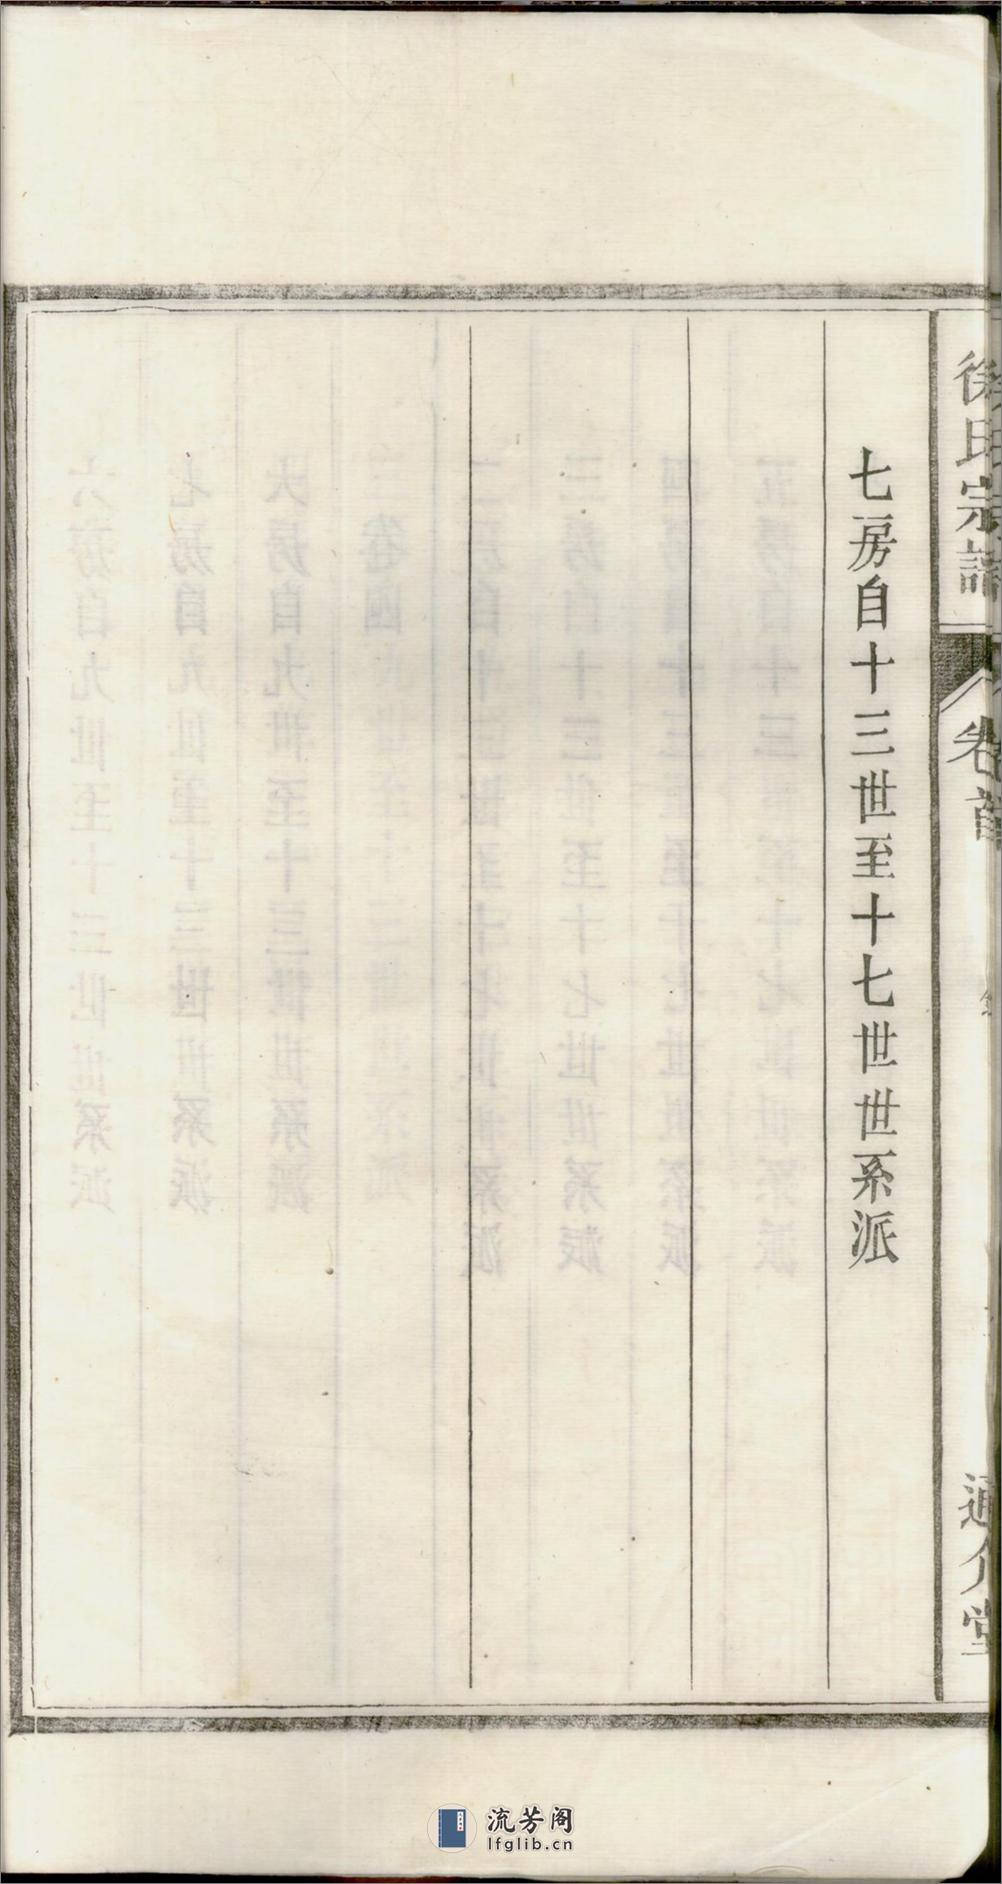 徐氏宗譜
卷首
通介堂
七房自十三世至十七世世系派
流芳阁
lfglib.cn